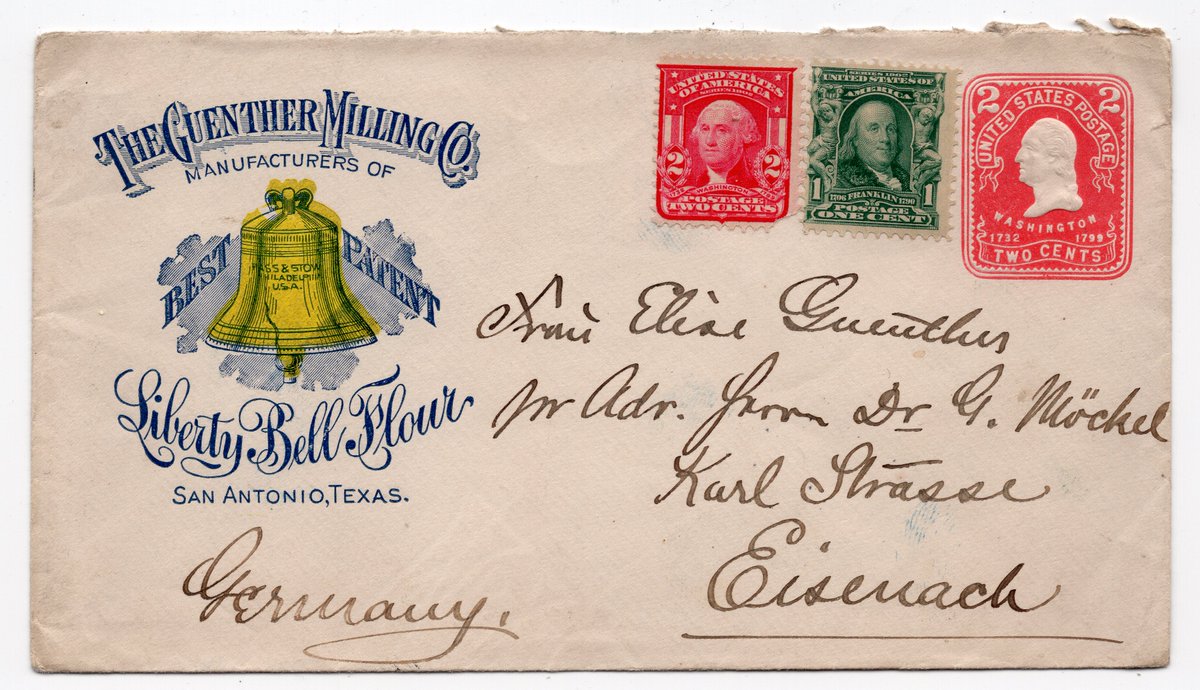 THE GUENTHER MILLING CO.
MANUFACTURERS OF
BEST PATENT
PASS & STOW
PHILADELPHIA
U.S.A.
Liberty Bell Flour
SAN ANTONIO, TEXAS.
UNITED STATES
OF AMERICA
SERIES 1902
2 2
1732 WASHINGTON 1799
POSTAGE
TWO CENTS
SERIES 1902
UNITED STATES OF
AMERICA
1 1
1706 FRANKLIN 1790
POSTAGE
ONE CENT
2 2
UNITED STATES POSTAGE
WASHINGTON
1732 1799
TWO CENTS
Frau Elise Guenther
pr Adr. Herrn Dr G. Möckel
Karl Strasse
Eisenach
Germany.